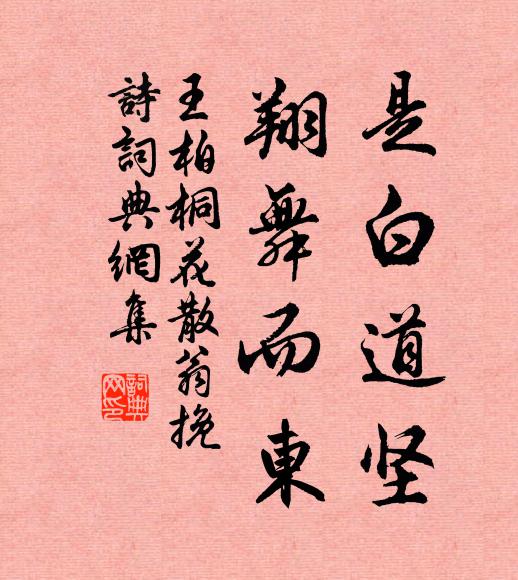 是白道坚
翔舞而東
王柏桐花散翁挽
詩詞典網集
詞典
网印